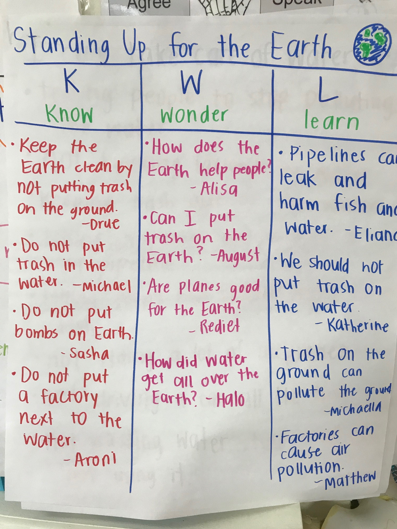 Agree
Speak
Standing Up for the Earth
K
Know
• Keep the
Earth clean by
not putting trash
on the ground.
-Drue
• Do not put
trash in the
water. -Michael
• Do not put
bombs on Earth.
- Sasha
• Do not put
a factory
next to the
water.
- Aroni
W
Wonder
• How does the
Earth help people?
- Alisa
• Can I put
trash on the
Earth? -August
• Are planes good
for the Earth?
- Rediet
• How did water
get all over the
Earth? - Halo
L
learn
• Pipelines ca
leak and
harm fish and
water. - Eliana
• We should not
put trash on
the water.
- Katherine
• Trash on the
ground can
pollute the ground
-Michaella
• Factories can
cause air
pollution.
- Matthew